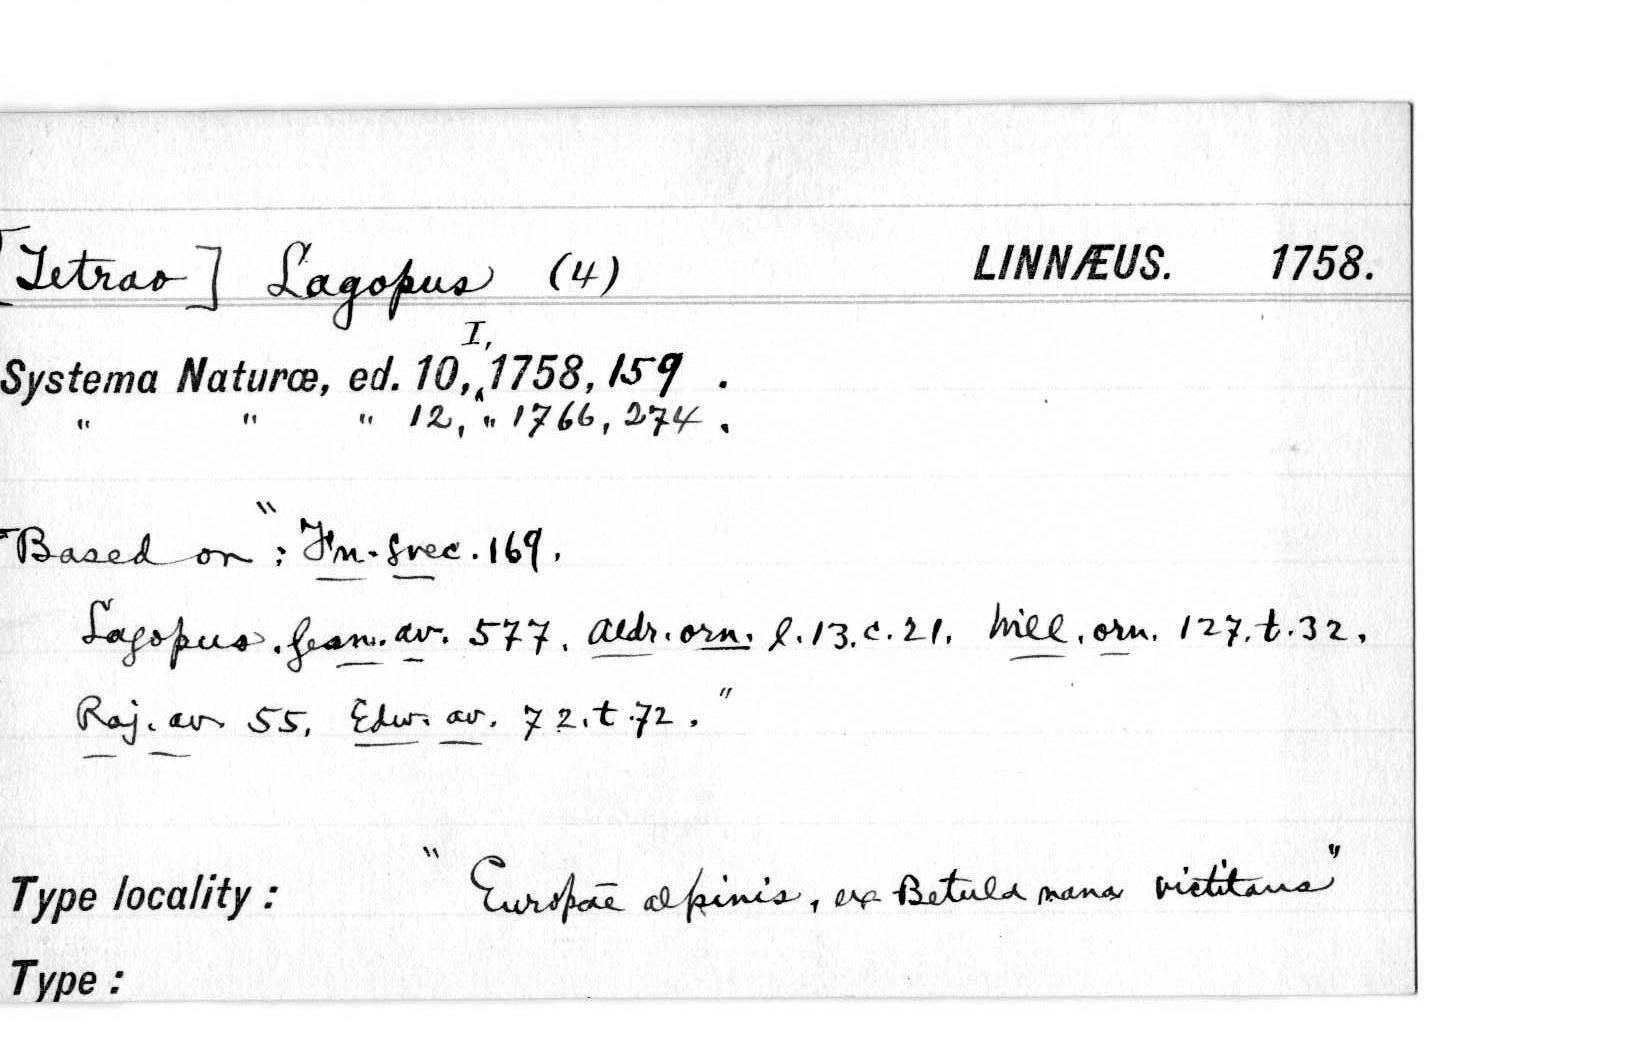 [Tetrao] Lagopus (4) LINNÆUS. 1758.
I,
Systema Naturæ, ed. 10, ‸ 1758, 159 .
" " " 12, " 1766, 274 .
Based on ": Fn. svec. 169.
Lagopus. Gesn. av. 577. Aldr. orn. l. 13. c. 21. Will. orn. 127. t. 32.
Raj. av. 55. Edw. av. 72. t. 72. "
Type locality : " Europae alpinis, ex Betula nana victitans "
Type :